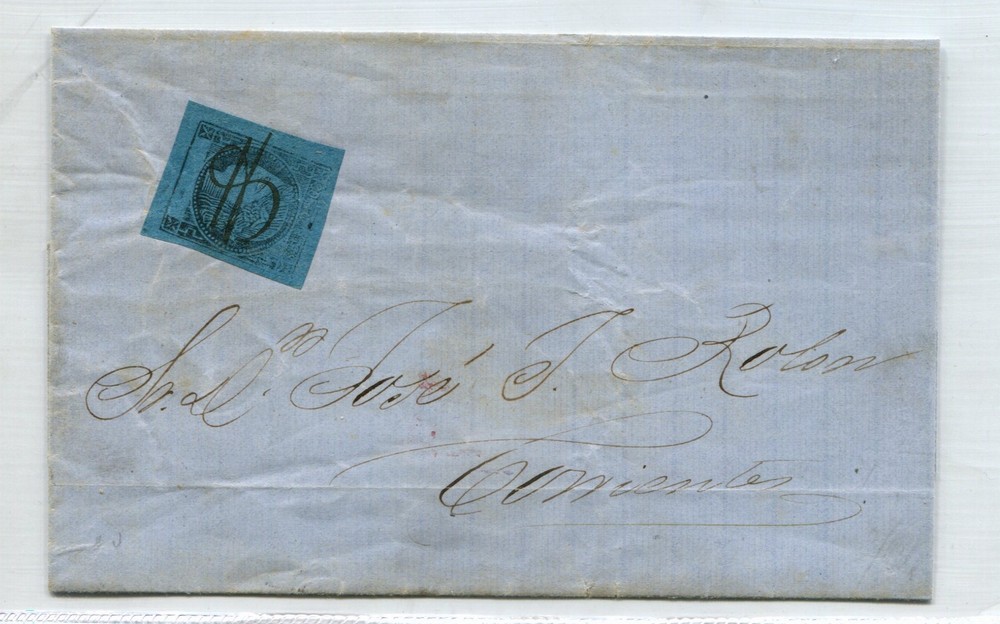 Sr. Dn. José J. Rolon
Corrientes